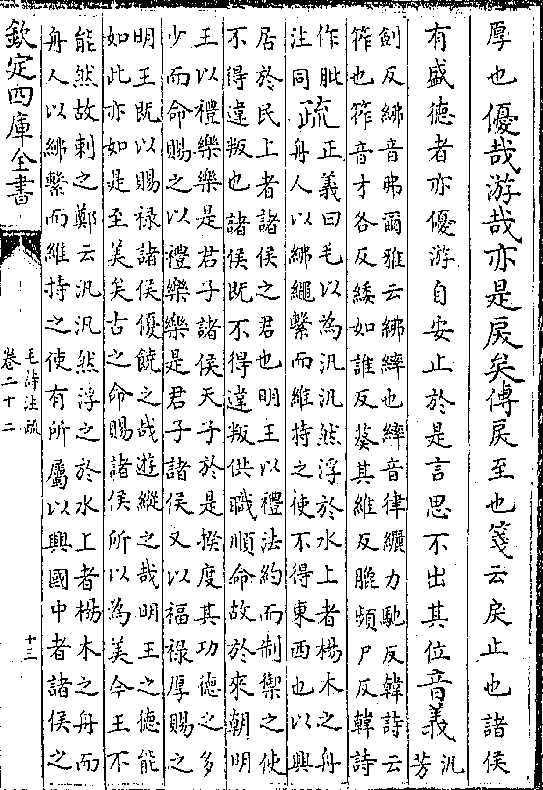 厚也優哉游哉亦是戾矣傳戾至也箋云戾止也諸侯
有盛德者亦優游自安止於是言思不出其位音義汎
芳
劒反紼音弗爾雅云紼繂也繂音律纚力馳反韓詩云
筰也筰音才各反緌如誰反葵其維反膍頻尸反韓詩
作肶
注同
疏
正義曰毛以為汎汎然浮於水上者楊木之舟
舟人以紼繩繫而維持之使不得東西也以興
居於民上者諸侯之君也明王以禮法約而制禦之使
不得違叛也諸侯既不得違叛供職順命故於來朝明
王以禮樂樂是君子諸侯天子於是揆度其功德之多
少而命賜之以禮樂樂是君子諸侯又以福祿厚賜之
明王既以賜祿諸侯優饒之哉遊縱之哉明王之德能
如此亦如是至美矣古之命賜諸侯所以為美今王不
能然故刺之鄭云汎汎然浮之於水上者楊木之舟而
舟人以紼繫而維持之使有所屬以興國中者諸侯之
欽定四庫全書
毛詩注疏
卷二十二
十三